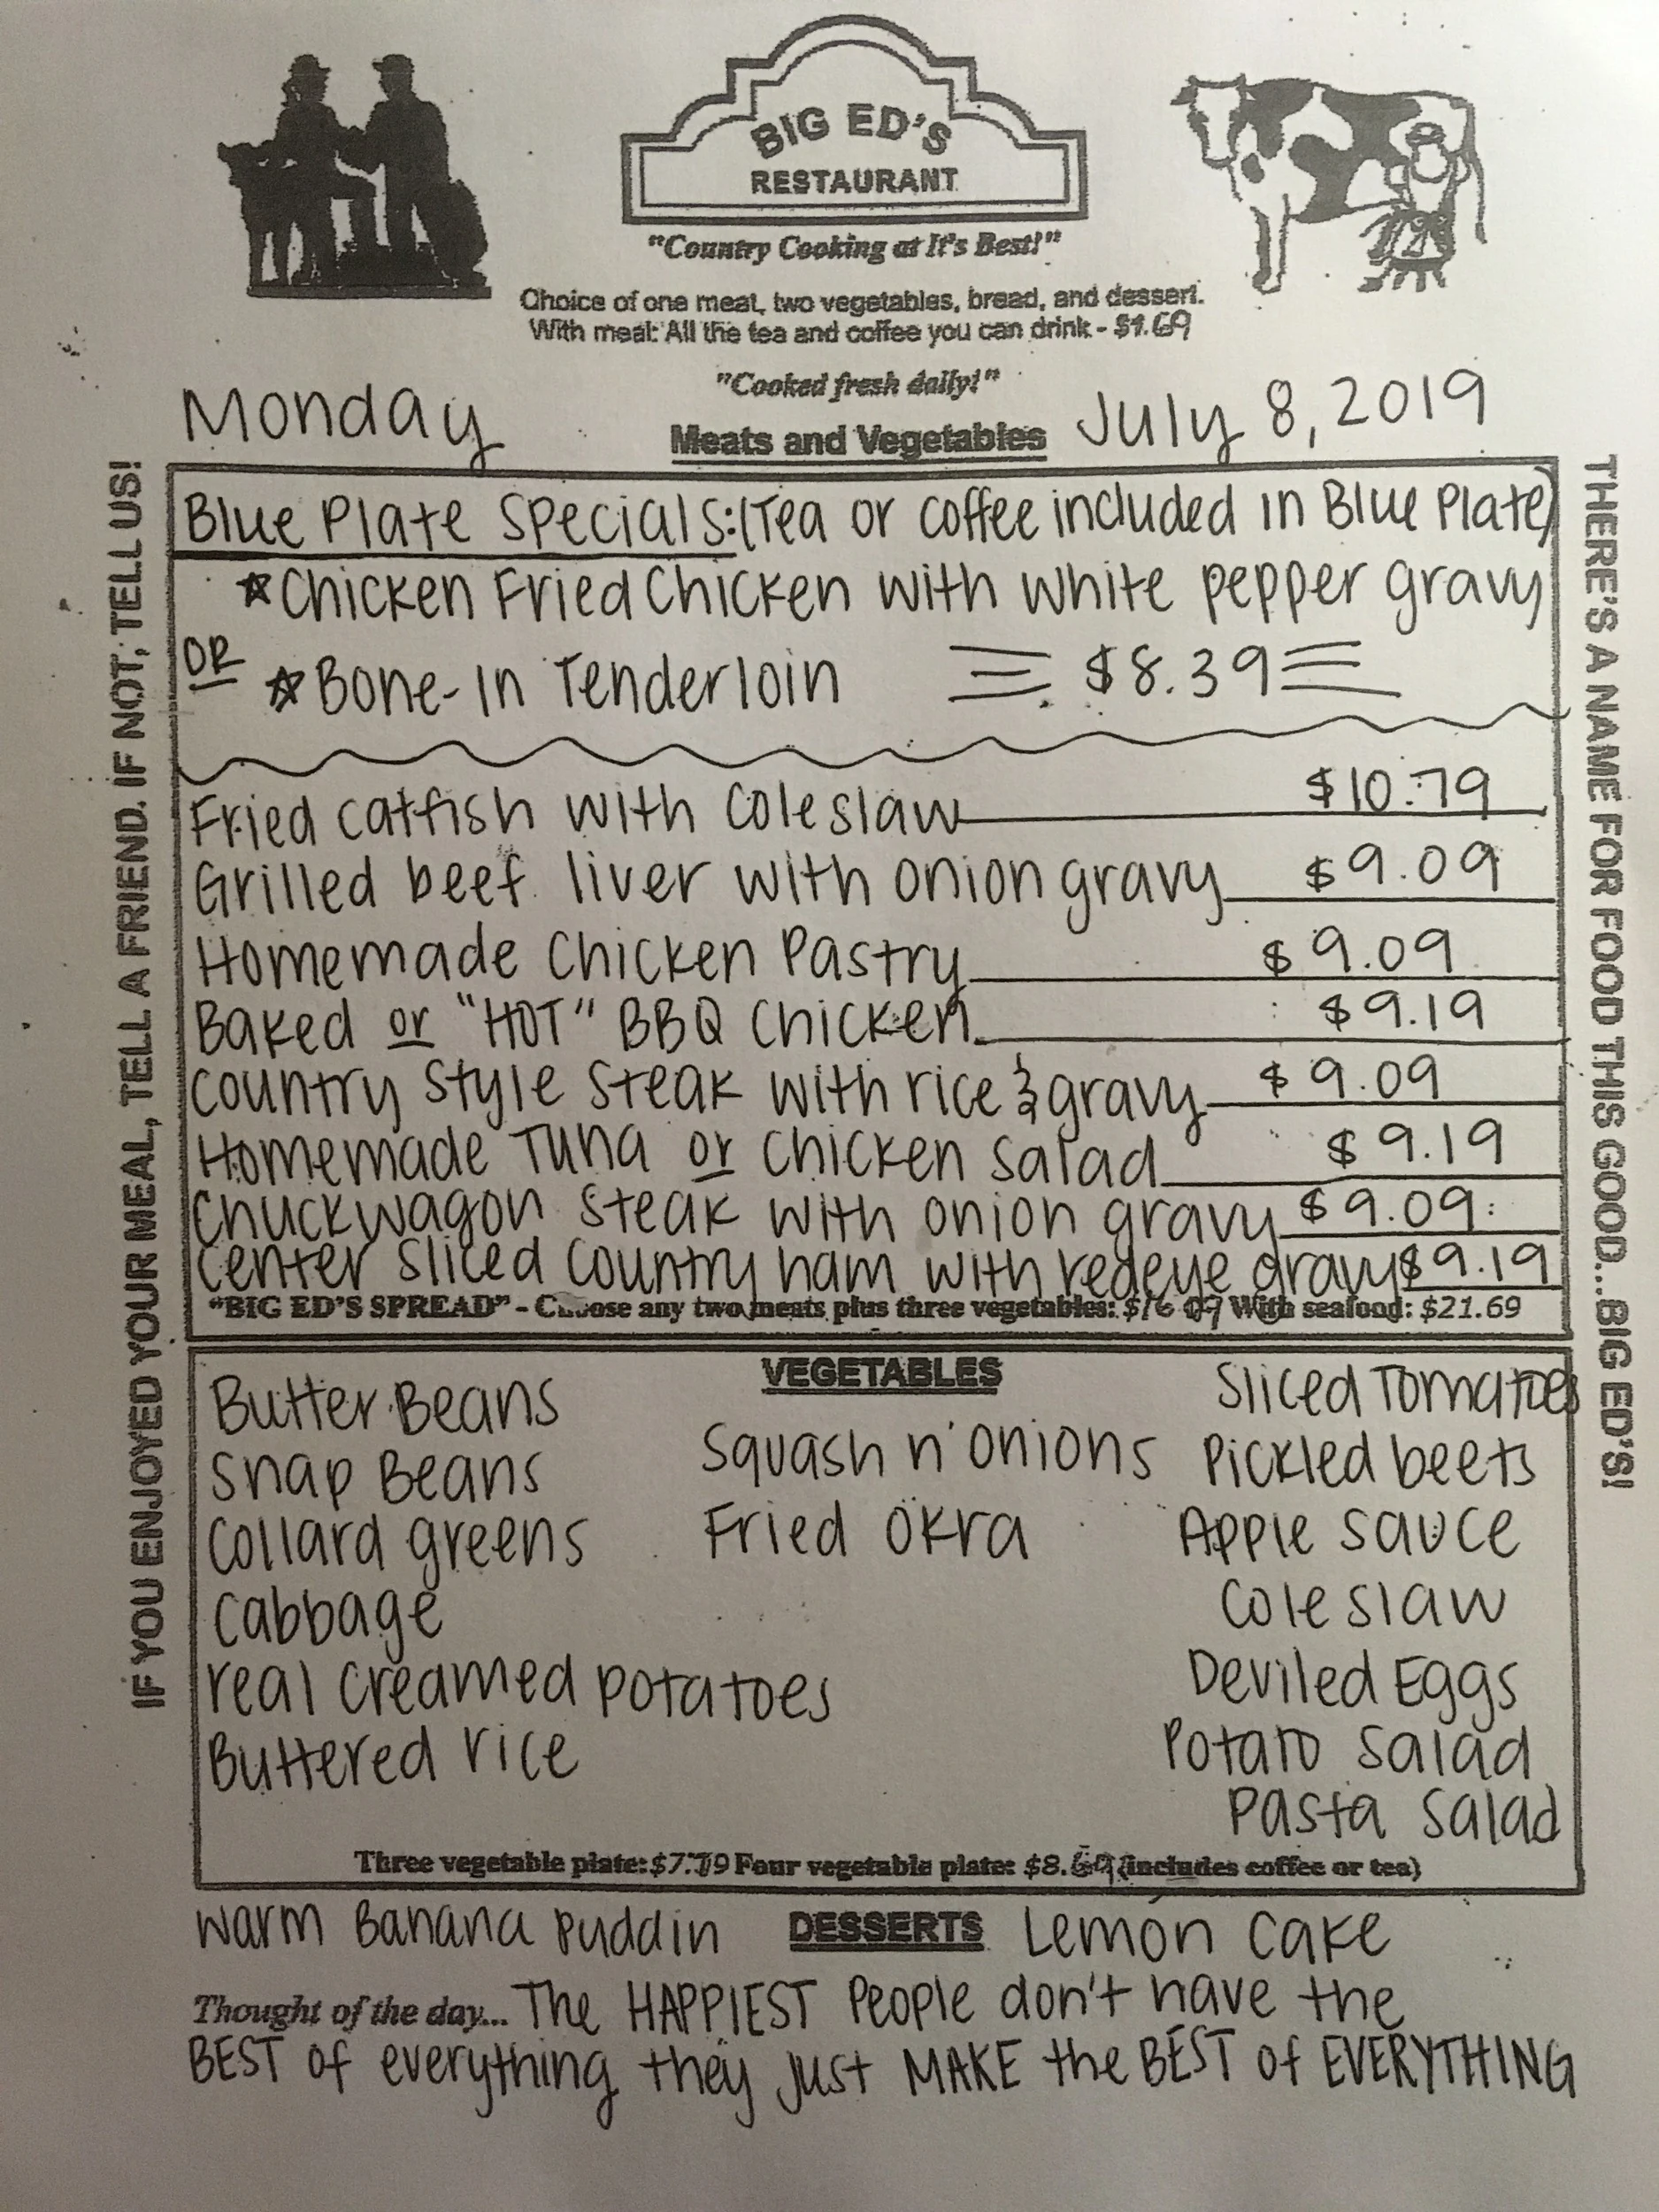 BIG ED'S
RESTAURANT
"Country Cooking at It's Best!"
Choice of one meat, two vegetables, bread, and dessert.
With meal: All the tea and coffee you can drink - $1.69
"Cooked fresh daily!"
Monday
July 8, 2019
Meats and Vegetables
IF YOU ENJOYED YOUR MEAL, TELL A FRIEND. IF NOT, TELL US!
Blue Plate Specials: (Tea or coffee included in Blue Plate)
☆ Chicken Fried Chicken with white pepper gravy
OR ☆ Bone-In Tenderloin $8.39
Fried catfish with coleslaw $10.79
Grilled beef liver with onion gravy $9.09
Homemade Chicken Pastry $9.09
Baked or "HOT" BBQ Chicken $9.19
Country Style Steak with rice & gravy $9.09
Homemade Tuna or Chicken Salad $9.19
Chuckwagon Steak with onion gravy $9.09
Center Sliced Country ham with redeye gravy $9.19
"BIG ED'S SPREAD" - Choose any two meats plus three vegetables: With seafood: $21.69
THERE'S A NAME FOR FOOD THIS GOOD...BIG ED'S!
VEGETABLES
Butter Beans
Snap Beans
Collard greens
Cabbage
real creamed potatoes
Buttered rice
Squash n' onions
Fried Okra
Sliced Tomatoes
Pickled beets
Apple sauce
Coleslaw
Deviled Eggs
Potato Salad
Pasta Salad
Three vegetable plate: Four vegetable plate: (includes coffee or tea)
Warm Banana Puddin DESSERTS Lemon Cake
Thought of the day... The HAPPIEST People don't have the
BEST of everything they just MAKE the BEST of EVERYTHING